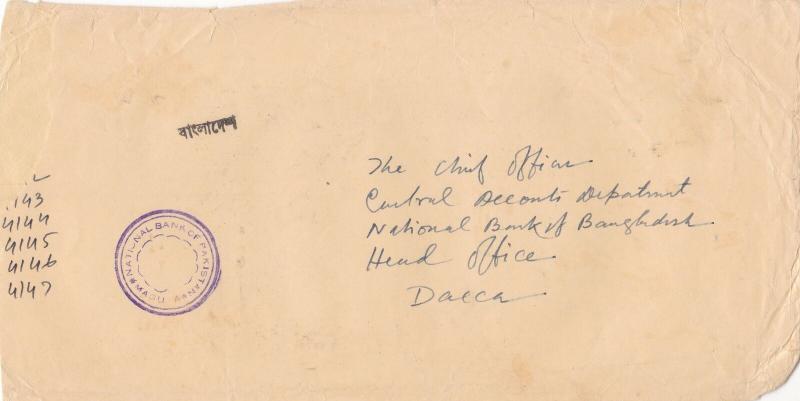 বাংলাদেশ
The Chief Officer
Central Accounts Department
National Bank of Bangladesh
Head Office
Dacca
143
4144
4145
4146
4147
NATIONAL BANK OF PAKISTAN